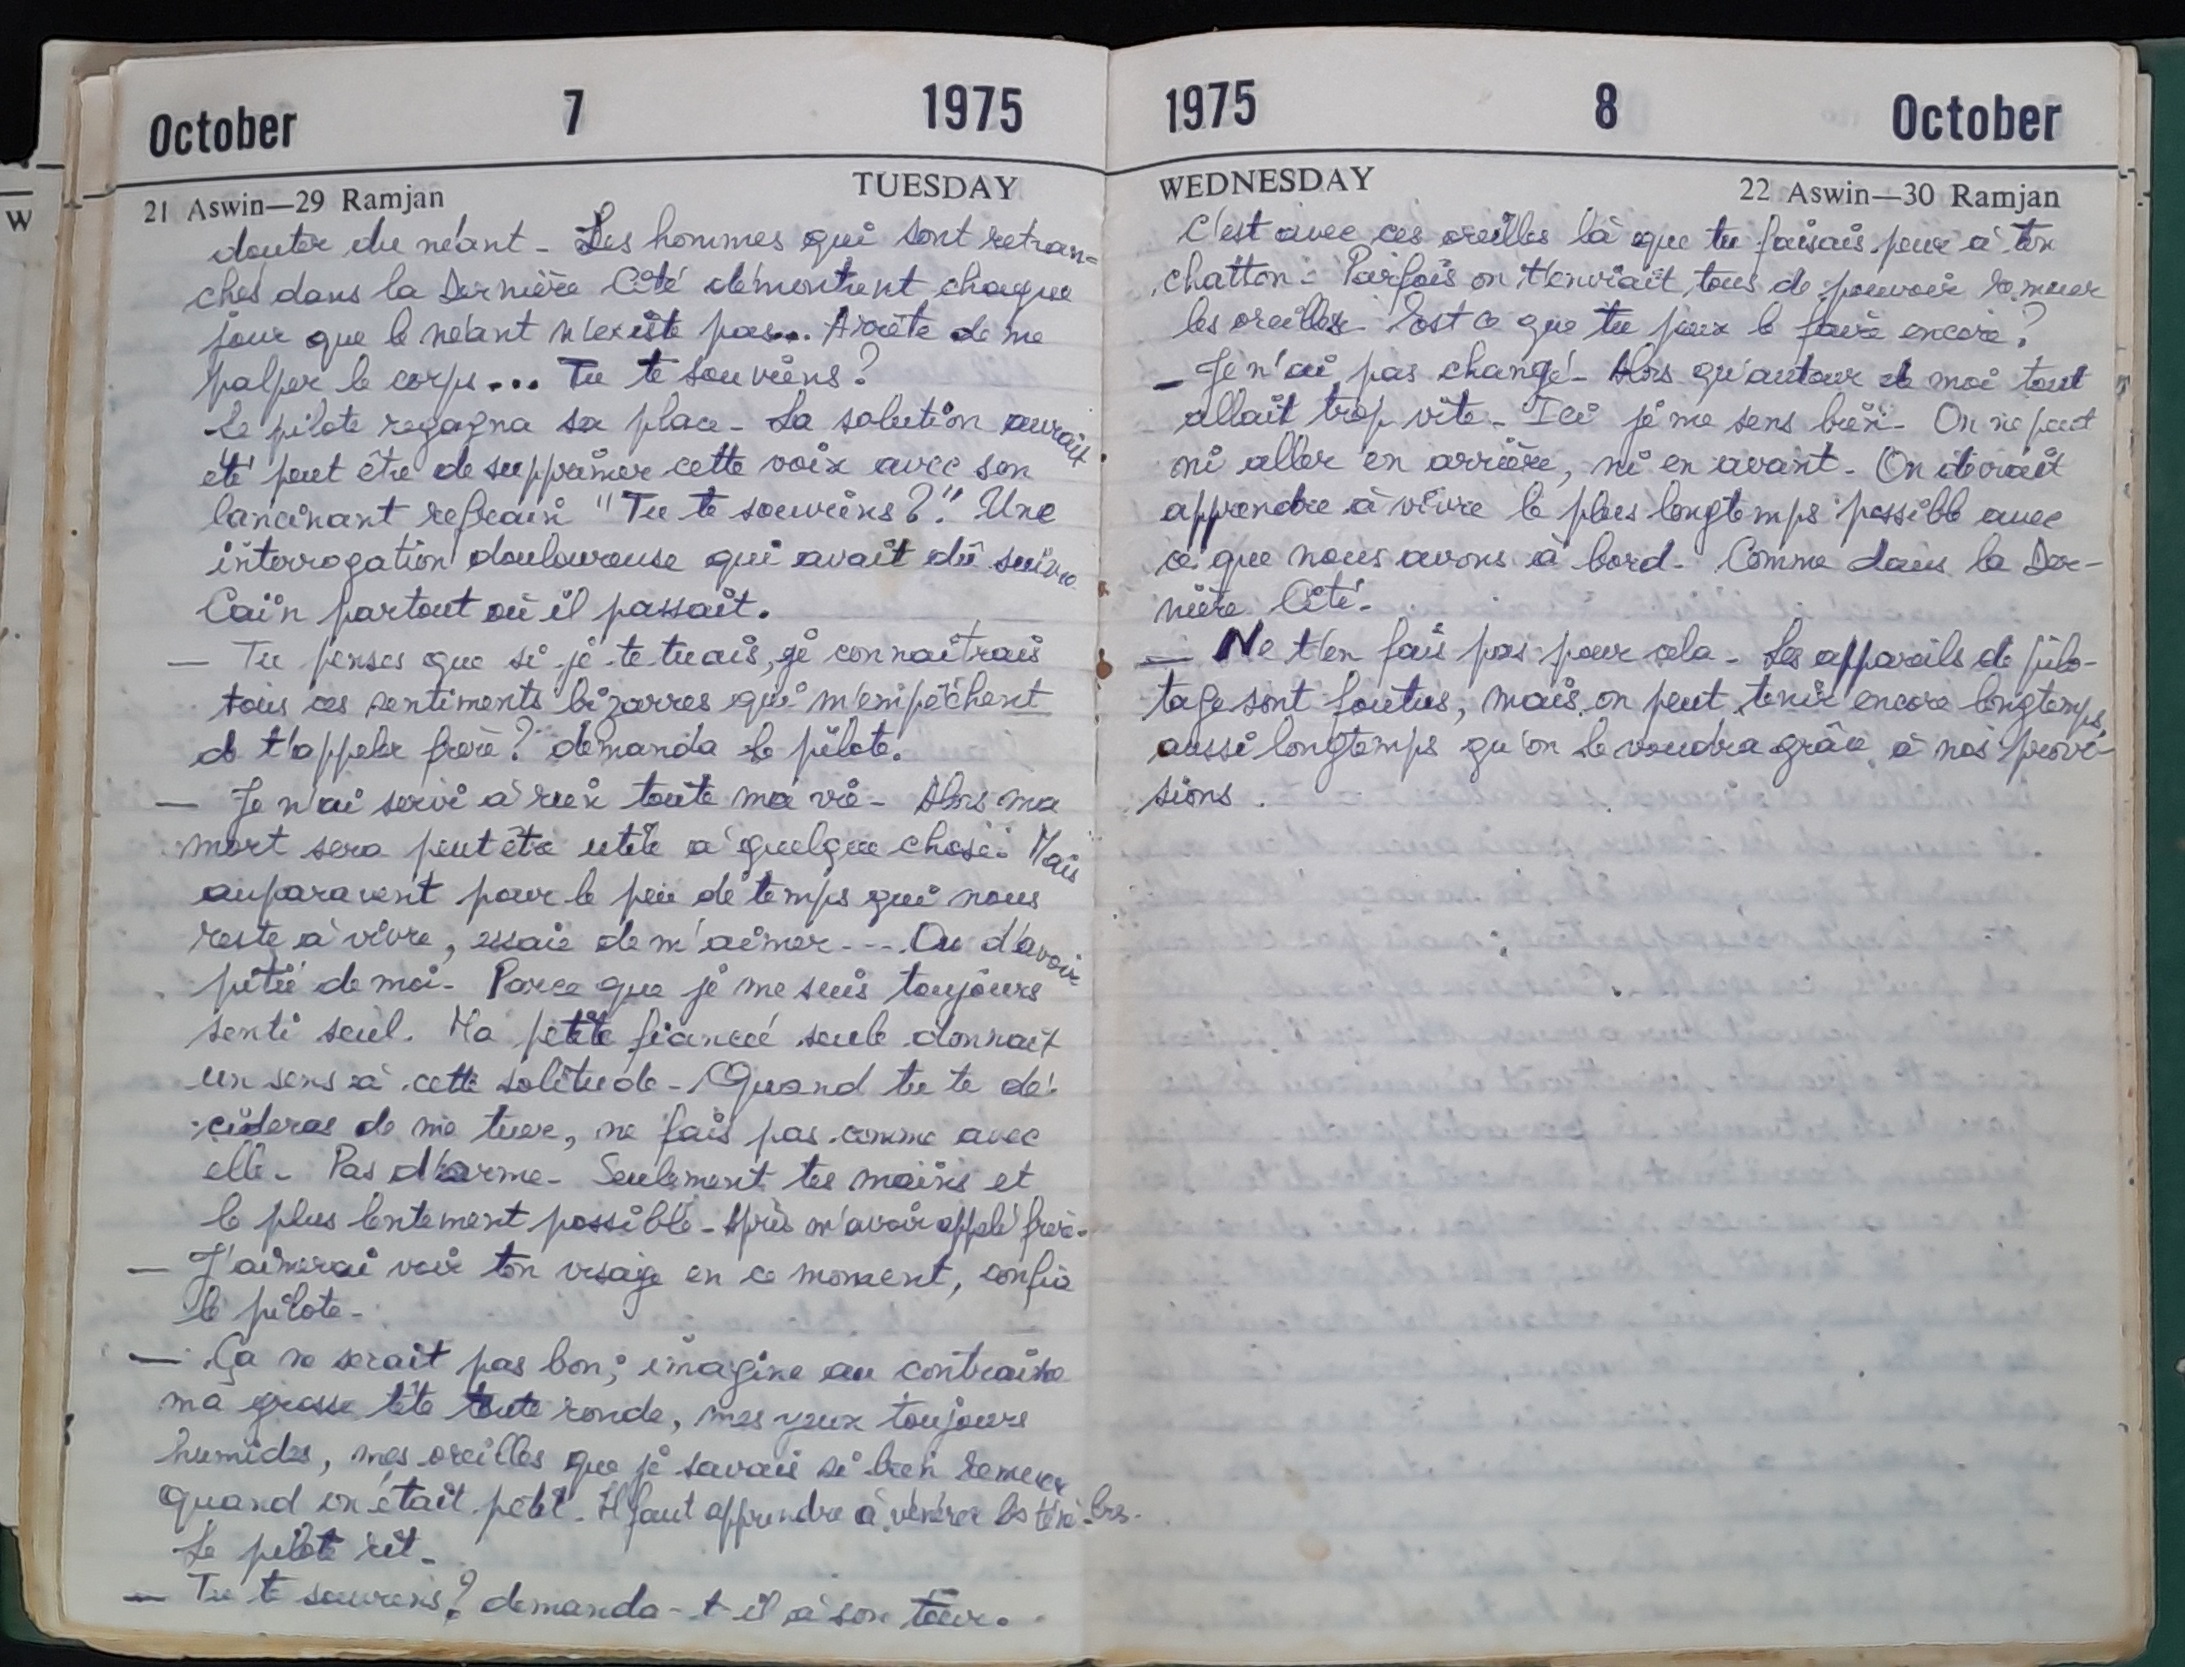 October 7 1975
21 Aswin—29 Ramjan TUESDAY
douter du néant - Les hommes qui sont retran=
chés dans la Dernière Cité démontrent chaque
jour que le néant n'existe pas... Arrête de me
palper le corps... Tu te souviens?
Le pilote regagna sa place - La solution aurait
été peut être de supprimer cette voix avec son
lancinant refrain "Tu te souviens?." Une
interrogation douloureuse qui avait dû suivre
Caïn partout où il passait.
— Tu penses que si je te tuais, je connaitrais
tous ces sentiments bizarres qui m'empêchent
de t'appeler frère? demanda le pilote.
— Je n'ai servi à rien toute ma vie - Alors ma
mort sera peut être utile à quelque chose. Mais
auparavent pour le peu de temps qui nous
reste à vivre, essaie de m'aimer --- Ou d'avoir
pitié de moi - Parce que je me suis toujours
senti seul. Ma petite fiancée seule donnait
un sens à cette solitude - Quand tu te dé-
cideras de me tuer, ne fais pas comme avec
elle - Pas d'arme - Seulement tes mains et
le plus lentement possible - Après m'avoir appelé frère -
— J'aimerai voir ton visage en ce moment, confia
le pilote -
— Ça ne serait pas bon; imagine au contraire
ma grosse tête toute ronde, mes yeux toujours
humides, mes oreilles que je savais si bien remuer
quand on était petit. Il faut apprendre à vénérer les ténèbres -
Le pilote rit -
— Tu te souviens? demanda-t-il à son tour.
1975 8 October
WEDNESDAY 22 Aswin—30 Ramjan
C'est avec ces oreilles là que tu faisais peur à ton
chatton. Parfois on t'enviait tous de pouvoir remuer
les oreilles - Est ce que tu peux le faire encore?
— Je n'ai pas changé - Alors qu'autour de moi tout
allait trop vite - Ici je me sens bien - On ne peut
ni aller en arrière, ni en avant - On devrait
apprendre à vivre le plus longtemps possible avec
ce que nous avons à bord - Comme dans la Der-
nière Cité -
— Ne t'en fais pas pour cela - Les appareils de pilo-
tage sont foutus, mais on peut tenir encore longtemps,
aussi longtemps qu'on le voudra grâce à nos provi-
sions.